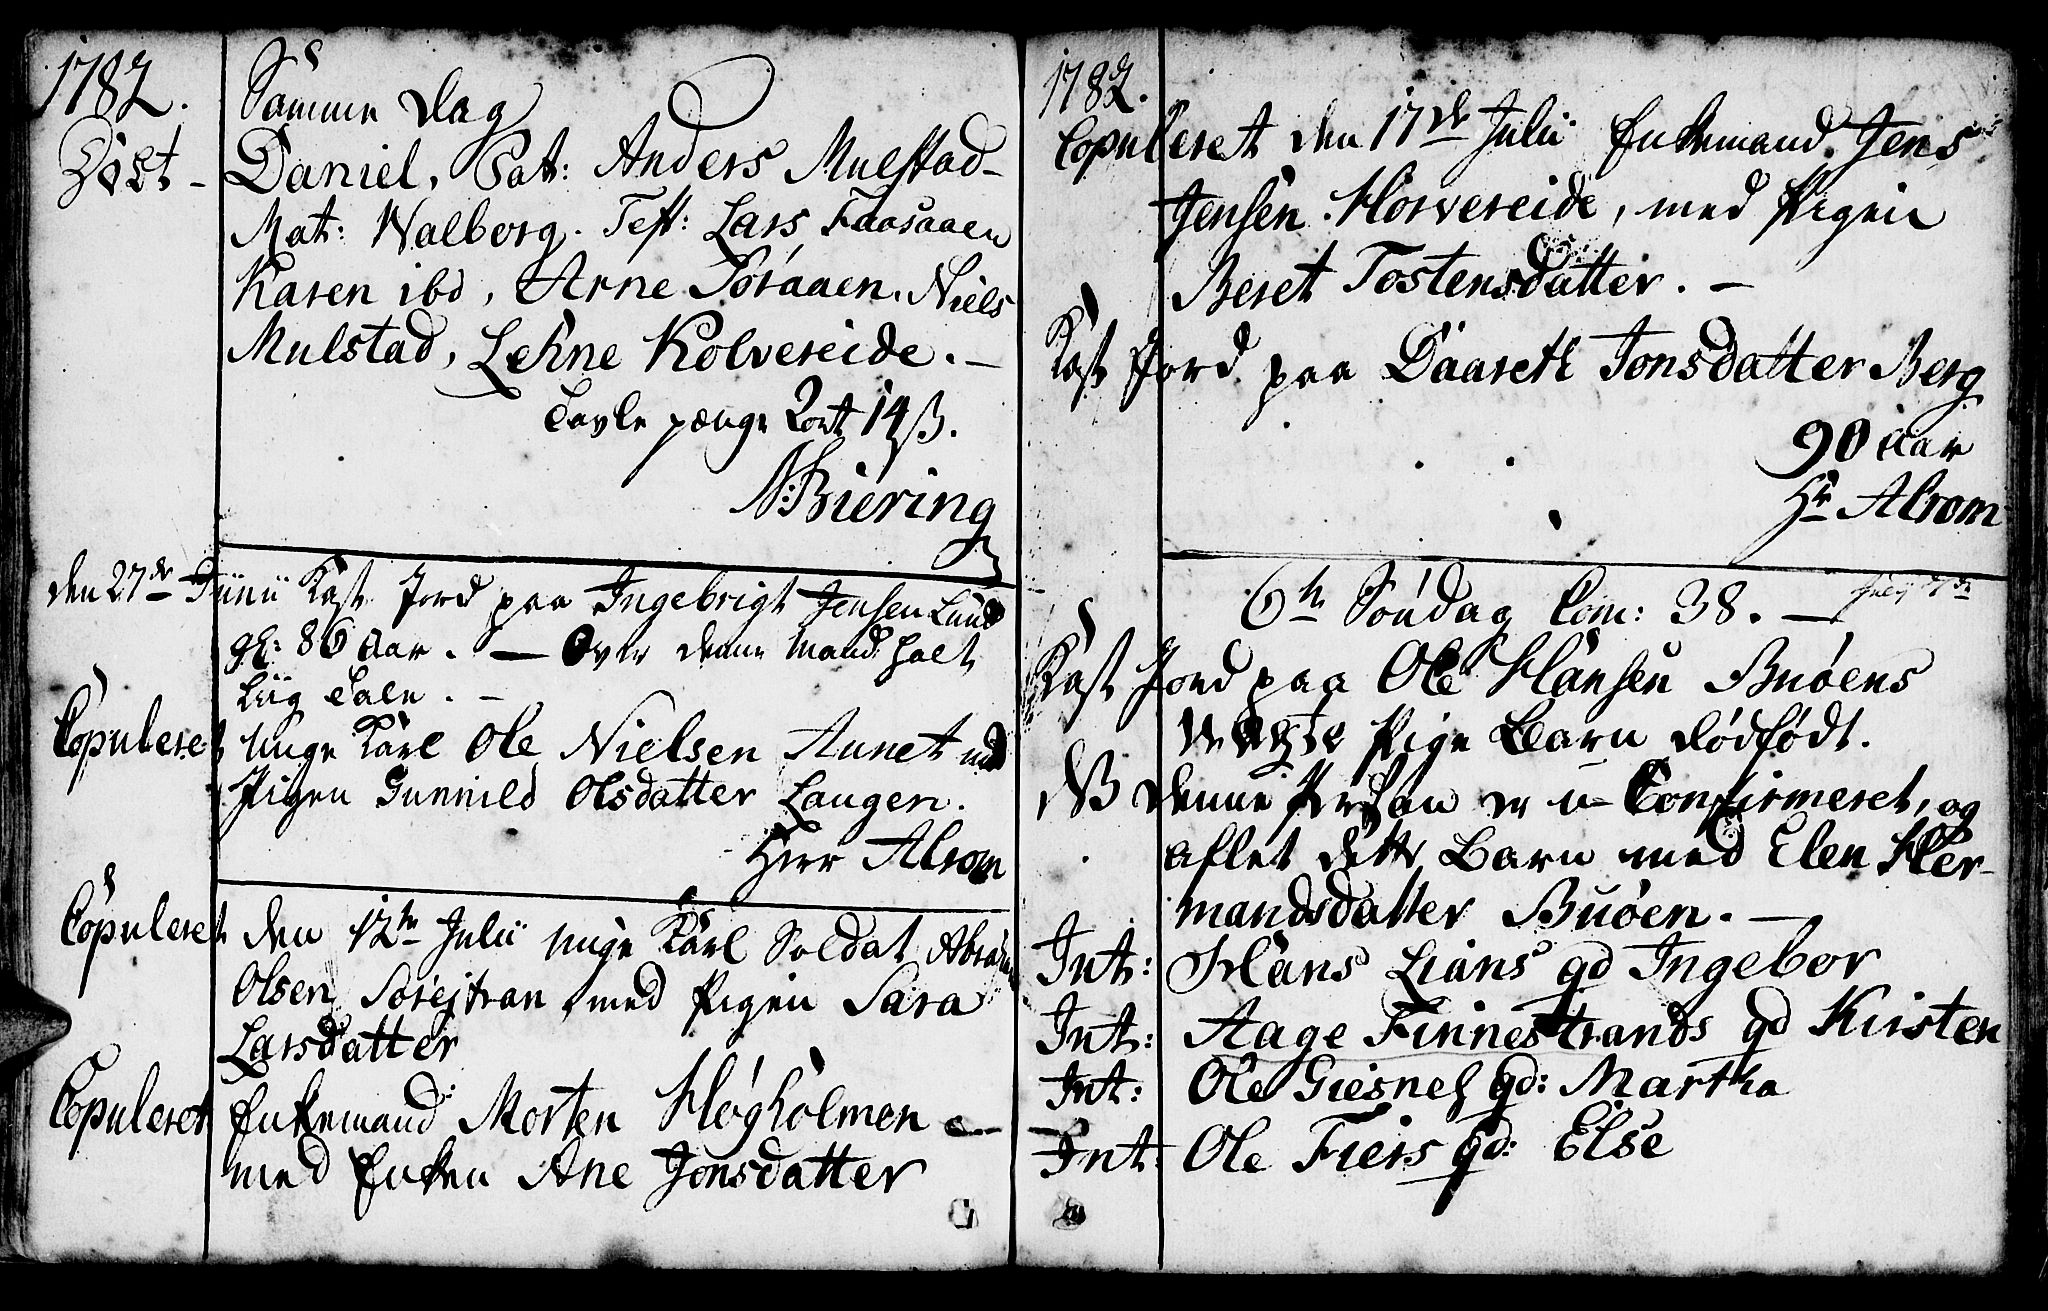 1782.
Samme Dag
Døbt - Daniel, Pat: Anders Mulstad-
Mat: Walborg. Test: Lars Faasaaen
Karen ibd, Arne Søraaen, Niels
Mulstad, Lehne Kolvereide. -
Tavle penge 2 ort 14 ß.
N: Biering
den 27de Junii Kast Jord paa Ingebrigt Jensen Lund
gl: 86 Aar. - Over denne Mand holt
Liig Tale. -
Copuleret unge Karl Ole Nielsen Aunet med
Pigen Gunnild Olsdatter Laugen.
Herr Alrom
Copuleret den 12te Julii unge Karl Soldat Abraham
Olsen Sørejtran, med Pigen Sara
Larsdatter
Copuleret Enkemand Morten Høgholmen
med Enken Ane Jonsdatter
1782.
Copuleret den 17de Julii Enkemand Jens
Jensen Horvereide, med Pigen
Beret Tostensdatter. -
Kast Jord paa Daareth Jonsdatter Berg
90 Aar
Hr Alrom
6te Søndag Com: 38. - July 7de
Kast Jord paa Ole Hansen Buøens
Pige Barn dødfødt.
NB denne Person er u- Confirmeret, og
aflet dette Barn med Elen Her-
mandsdatter Buøen. -
Int: Hans Lians gd Ingebor
Int: Aage Finnestrands gd Kirsten
Int: Ole Giesnes gd: Martha
Int: Ole Fiers gd: Else